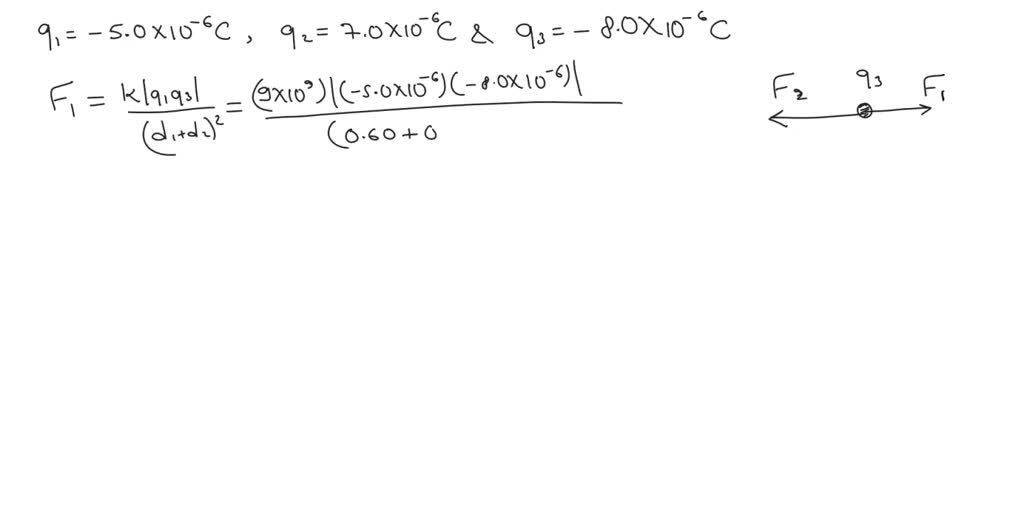 q₁ = −5.0×10⁻⁶C, q₂ = 7.0×10⁻⁶C & q₃ = −8.0×10⁻⁶C
F₁ = k|q₁q₃| / (d₁+d₂)² = (9×10⁹)|(−5.0×10⁻⁶)(−8.0×10⁻⁶)| / (0.60+0
F₂ q₃ F₁